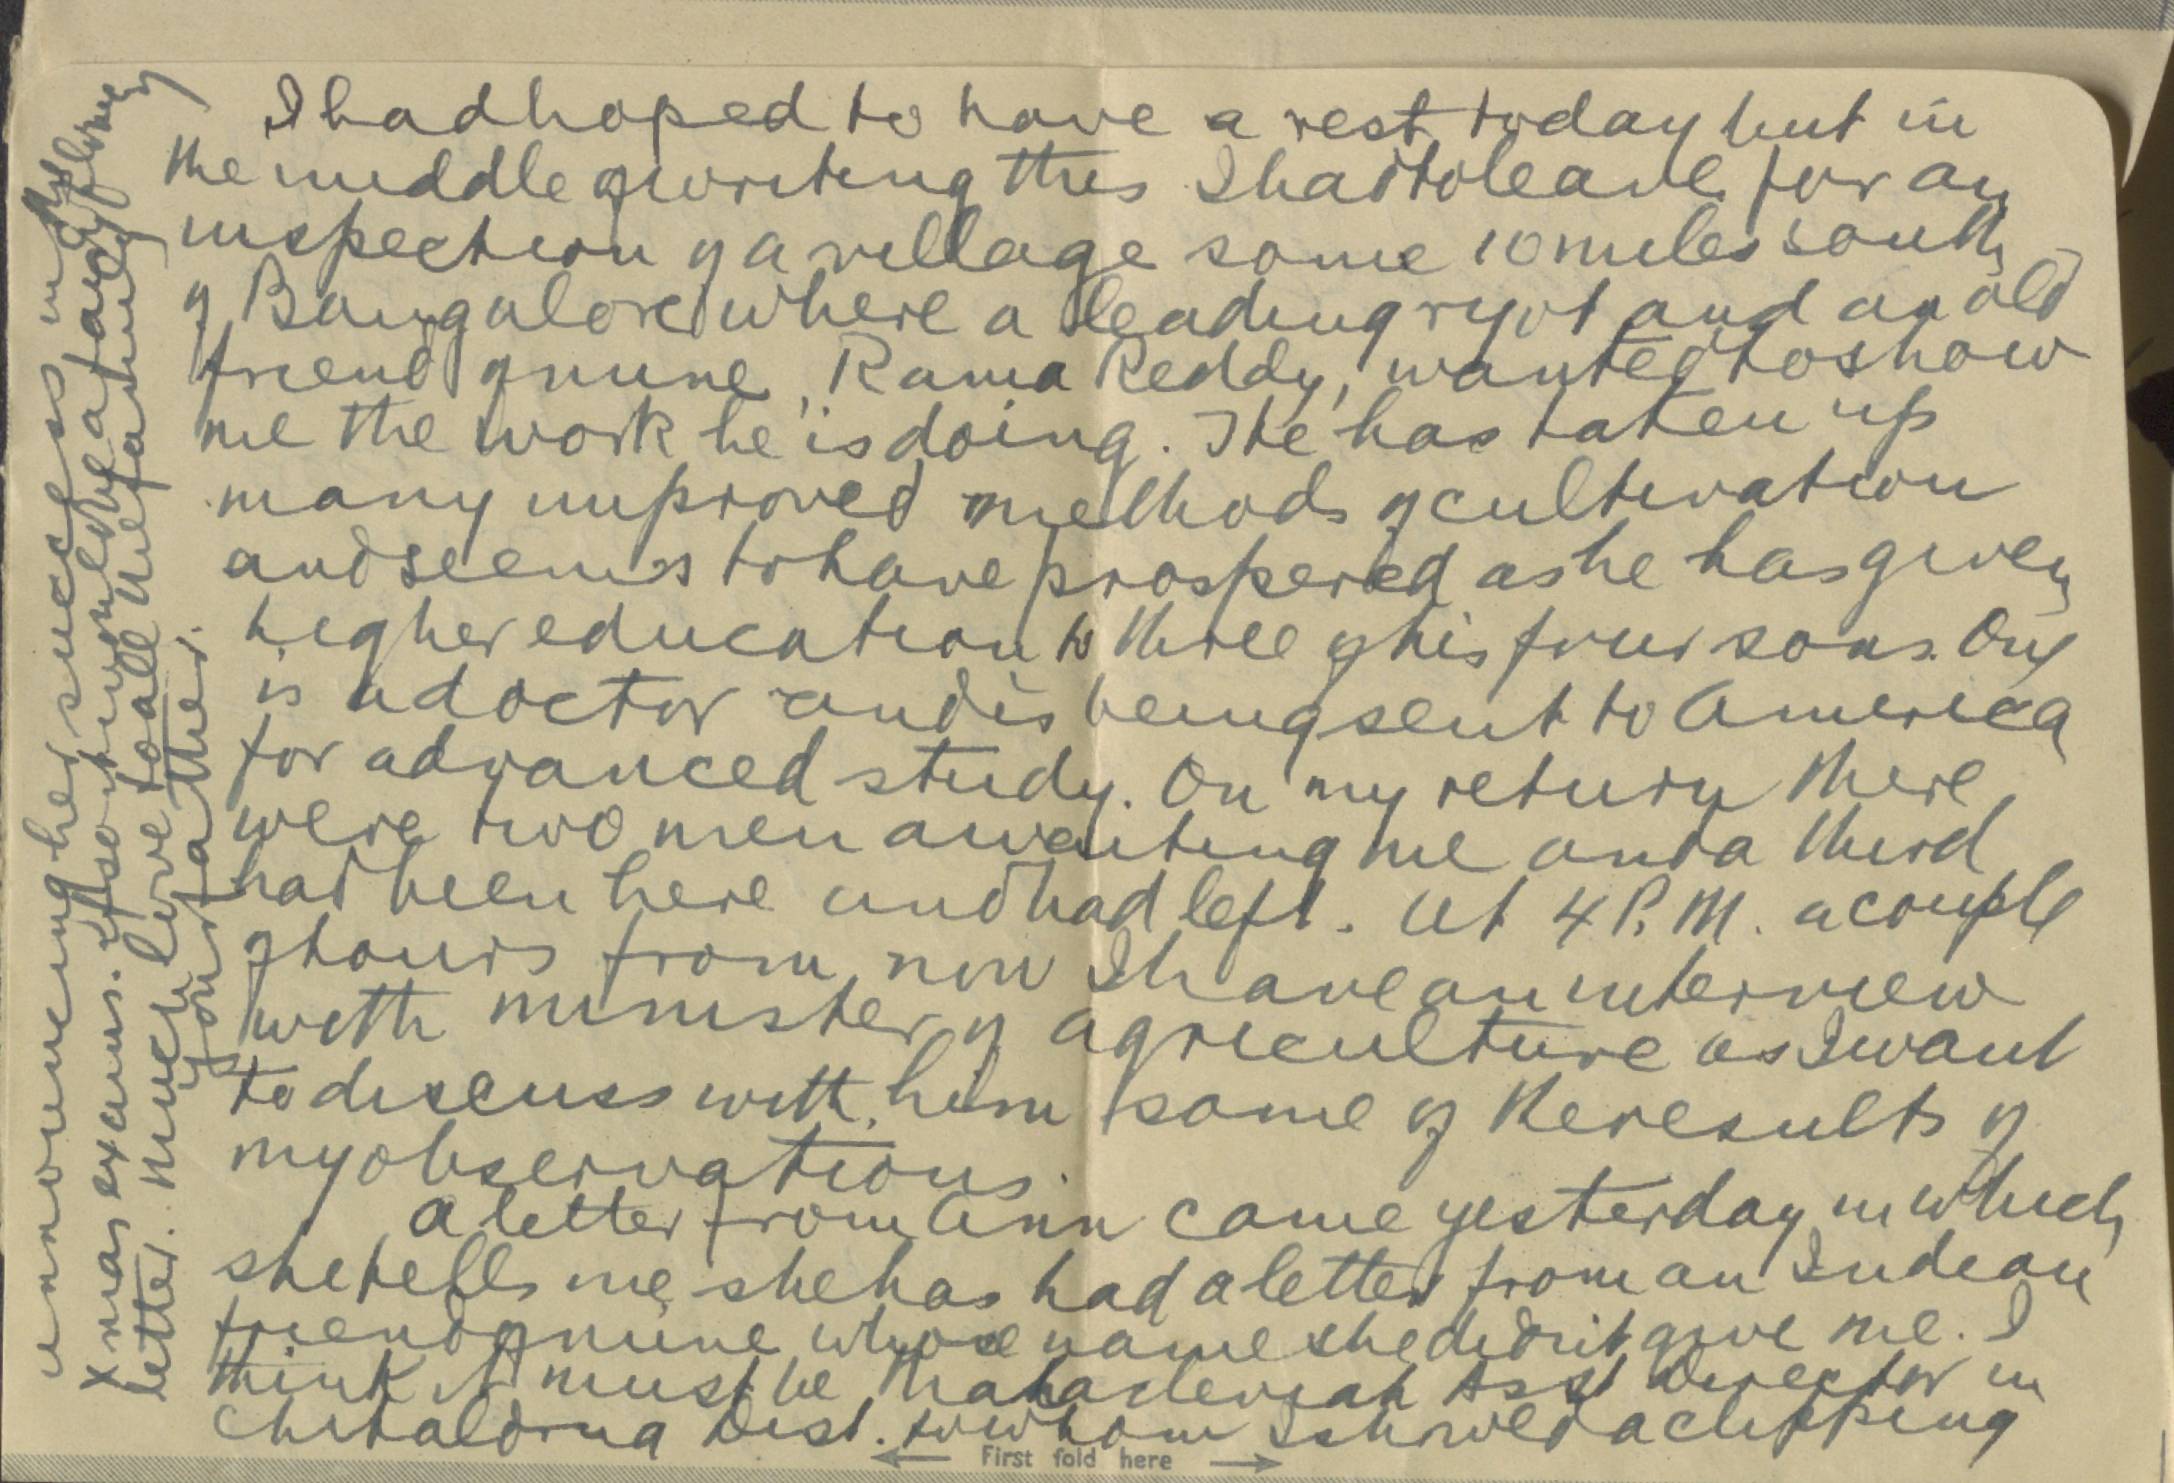 I had hoped to have a rest today but in
the middle of writing this I had to leave for an
inspection of a village some 10 miles south
of Bangalore where a leading ryot and an old
friend of mine, Rama Reddy, wanted to show
me the work he is doing. He has taken up
many improved methods of cultivation
and seems to have prospered as he has given
higher education to three of his four sons. One
is a doctor and is being sent to America
for advanced study. On my return there
were two men awaiting me and a third
had been here and had left. At 4 P.M. a couple
of hours from now I have an interview
with minister of agriculture as I want
to discuss with him some of the results of
my observations.
A letter from Ann came yesterday in which
she tells me she has had a letter from an Indian
friend of mine whose name she didn't give me. I
think it must be Mahadeviah Asst Director in
Chitaldrug Dist. to whom I showed a clipping
First fold here
announcing her success in
Xmas exams. If so it will be a fancy flowery
letter. Much love to all the family
your father.